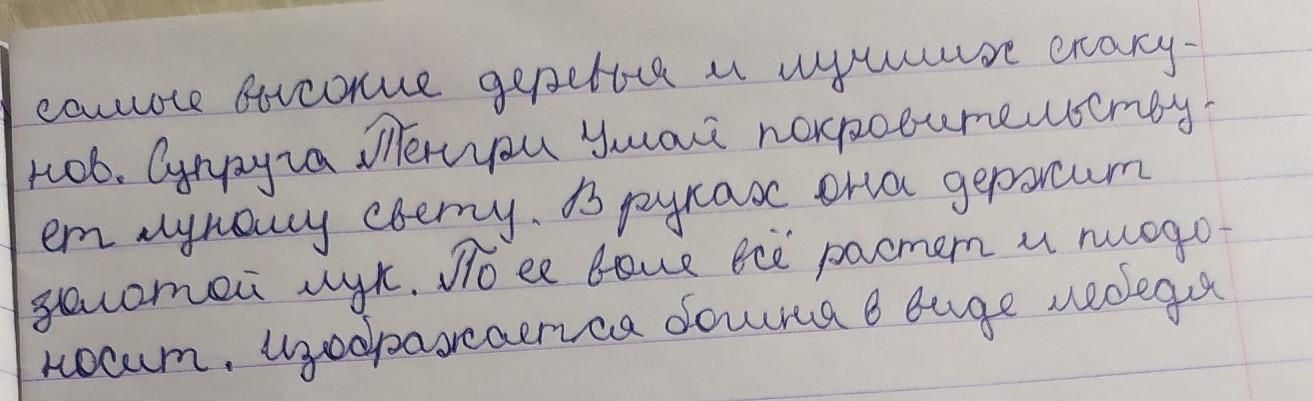 самые высокие деревья и лучших скаку-
нов. Супруга Тенгри Умай покровительству-
ет луному свету. В руках она держит
золотой лук. По ее воле всё растет и плодо-
носит. Изображается богиня в виде лебедя